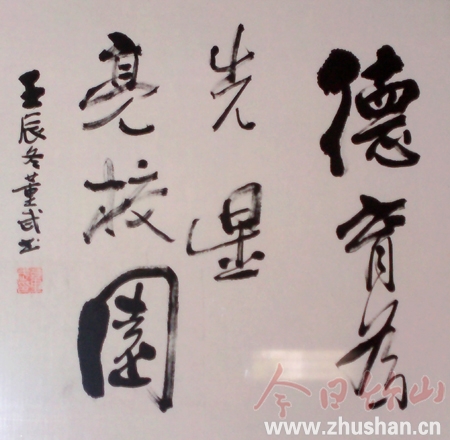 德育为
先星
亮校园
壬辰冬董武书
今日竹山
www.zhushan.cn